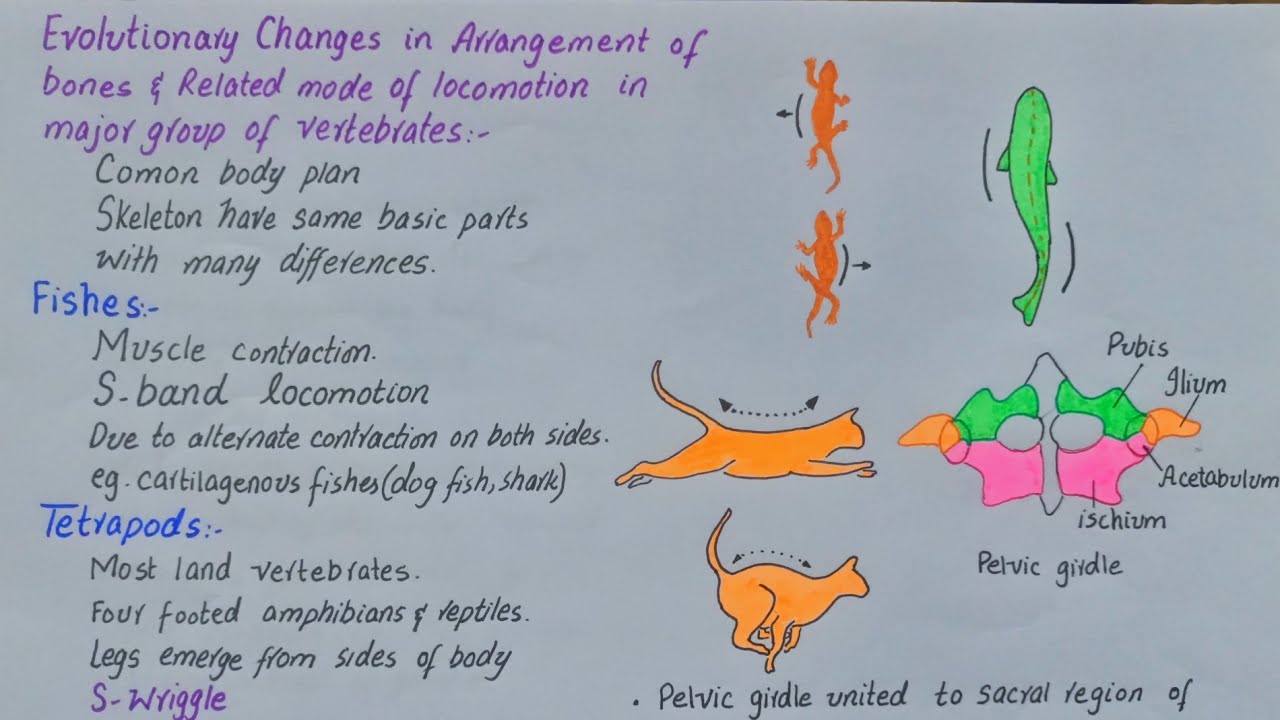 Evolutionary Changes in Arrangement of
bones & Related mode of locomotion in
major group of vertebrates:-
Comon body plan
Skeleton have same basic parts
with many differences.
Fishes:-
Muscle contraction.
S-band locomotion
Due to alternate contraction on both sides.
eg. cartilagenous fishes(dog fish, shark)
Tetrapods:-
Most land vertebrates.
Four footed amphibians & reptiles.
Legs emerge from sides of body
S-Wriggle
Pubis
Ilium
Acetabulum
ischium
Pelvic girdle
. Pelvic girdle united to sacral region of